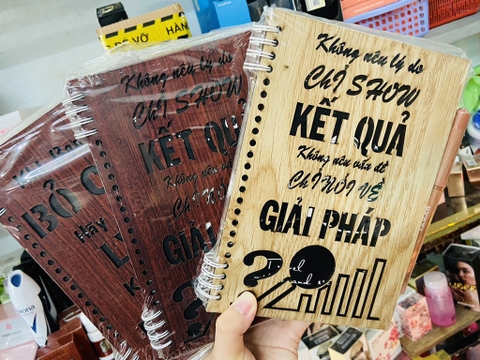 DỄ VỠ HÀN
Không nêu lý do
Chỉ SHOW
KẾT QUẢ
Không nêu vấn đề
Chỉ NÓI VỀ
GIẢI PHÁP
Không nêu lý do
Chỉ SHOW
KẾT QUẢ
Không nêu vấn đề
Chỉ NÓI
GIẢI
BỎ C
Hãy
L